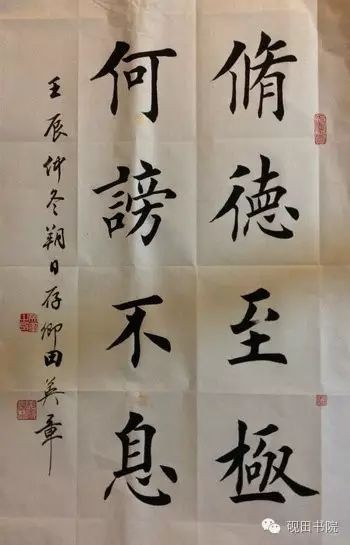 脩德至極
何謗不息
壬辰仲冬朔日存卿田英章
砚田书院